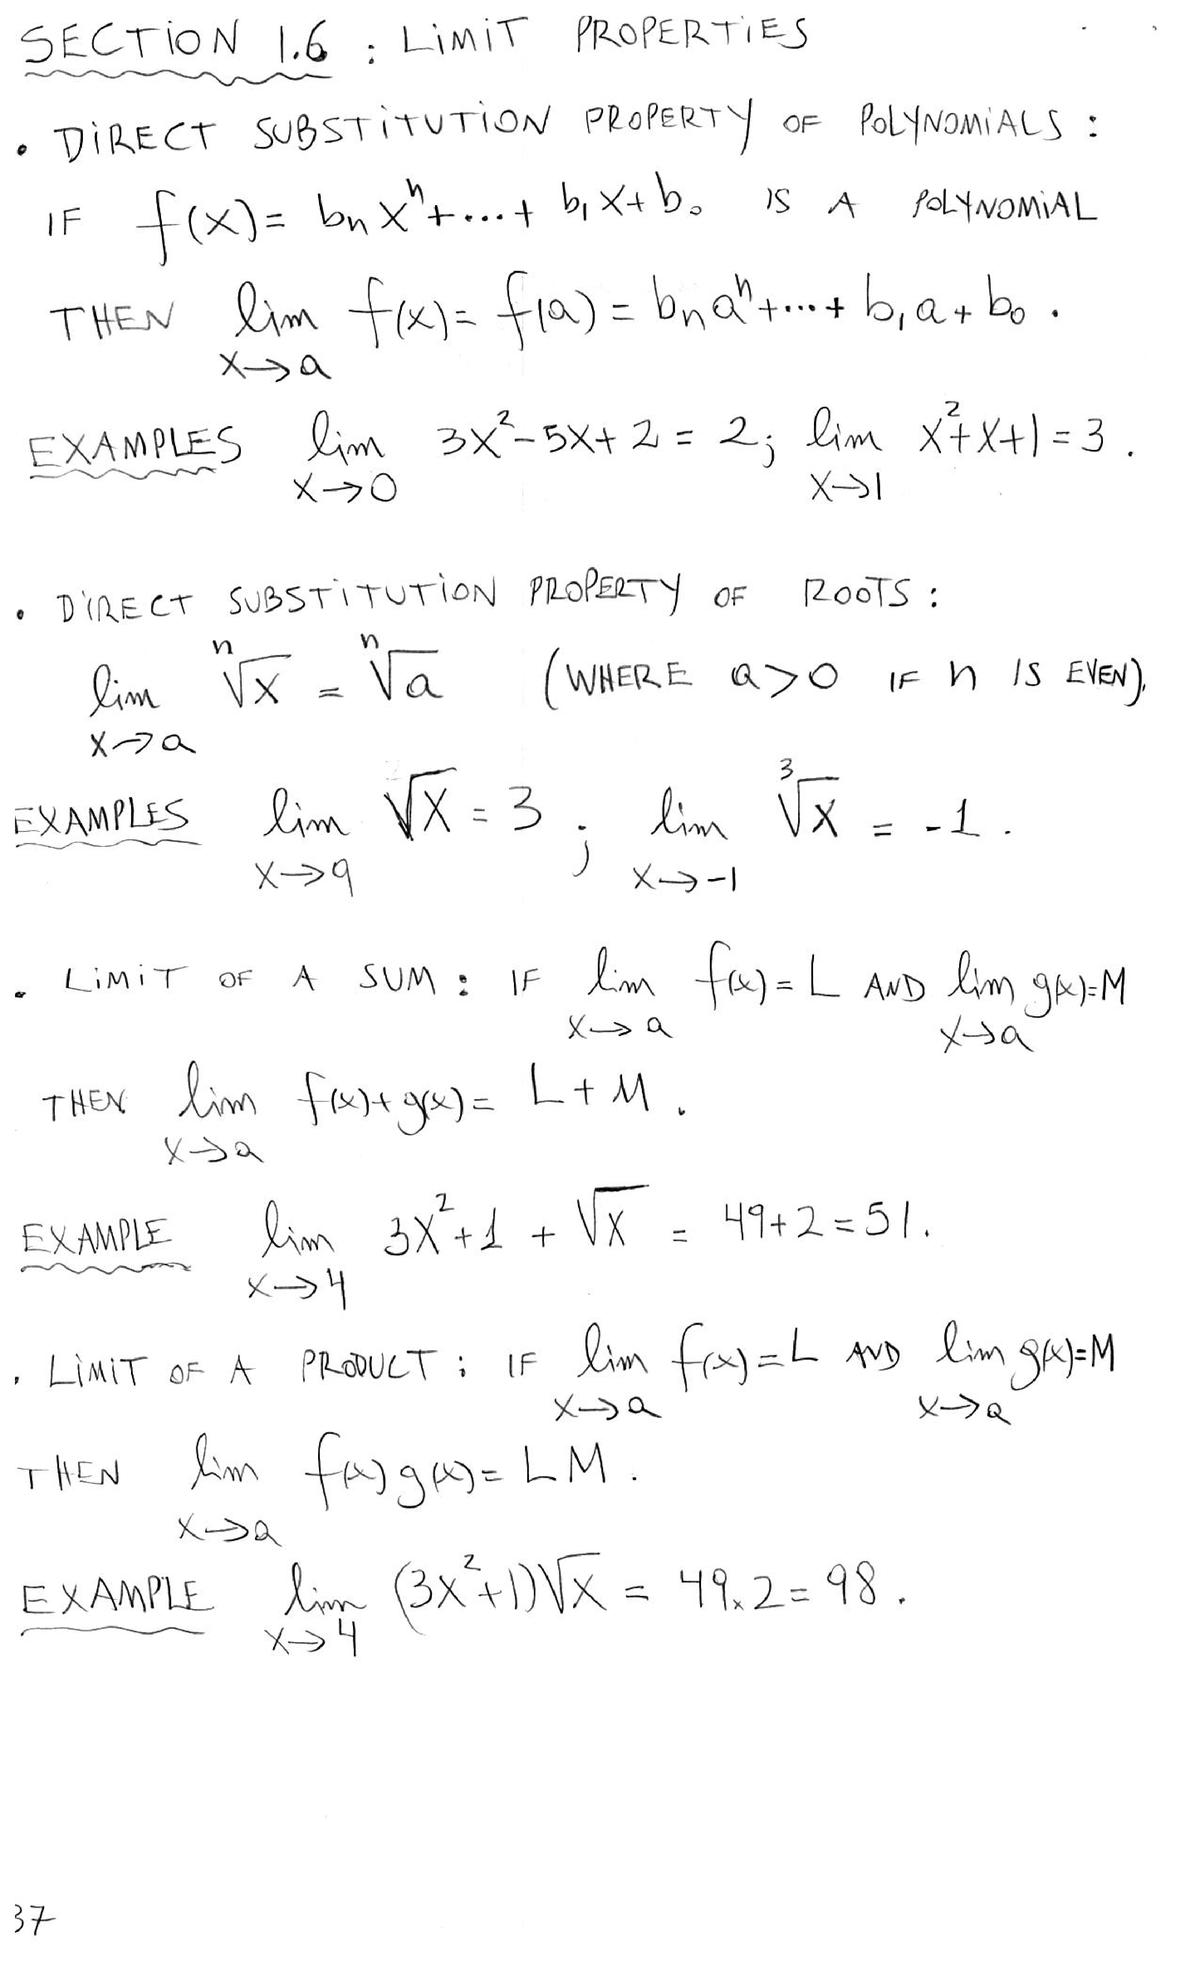 SECTION 1.6 : LIMIT PROPERTIES
• DIRECT SUBSTITUTION PROPERTY OF POLYNOMIALS :
IF f(x) = bₙxⁿ + ... + b₁x + b₀ IS A POLYNOMIAL
THEN lim f(x) = f(a) = bₙaⁿ + ... + b₁a + b₀ .
x→a
EXAMPLES lim 3x² - 5x + 2 = 2 ; lim x² + x + 1 = 3 .
x→0 x→1
• DIRECT SUBSTITUTION PROPERTY OF ROOTS :
lim ⁿ√x = ⁿ√a (WHERE a > 0 IF n IS EVEN).
x→a
EXAMPLES lim √x = 3 ; lim ³√x = -1 .
x→9 x→-1
• LIMIT OF A SUM : IF lim f(x) = L AND lim g(x) = M
x→a x→a
THEN lim f(x) + g(x) = L + M .
x→a
EXAMPLE lim 3x² + 1 + √x = 49 + 2 = 51 .
x→4
• LIMIT OF A PRODUCT : IF lim f(x) = L AND lim g(x) = M
x→a x→a
THEN lim f(x) g(x) = LM .
x→a
EXAMPLE lim (3x² + 1)√x = 49 × 2 = 98 .
x→4
37